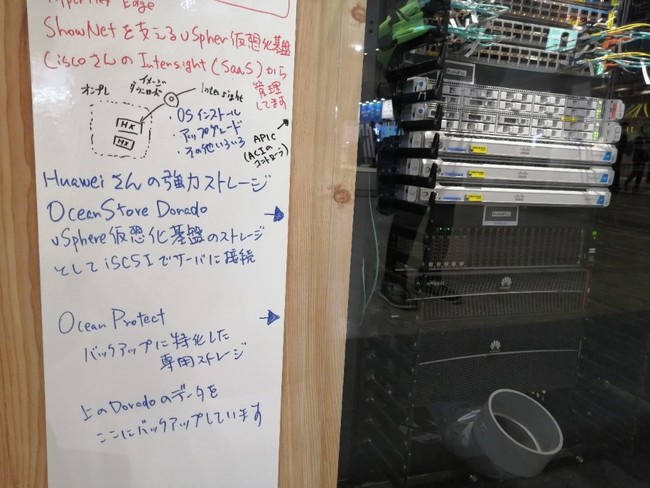 HyperFlex Edge
ShowNetを支えるvSpher仮想化基盤
Ciscoさんの Intersight (SaaS) から
管理
してます
オンプレ
イメージ
ダウンロード
Intersight
HX
HX
・OSインストール
・アップグレード
・その他いろいろ
APIC
(ACIの
コントローラ)
Huaweiさんの強力ストレージ
OceanStore Dorado
vSphere仮想化基盤のストレージ
として iSCSI でサーバに接続
Ocean Protect
バックアップに特化した
専用ストレージ
上のDoradoのデータを
ここにバックアップしています
HUAWEI